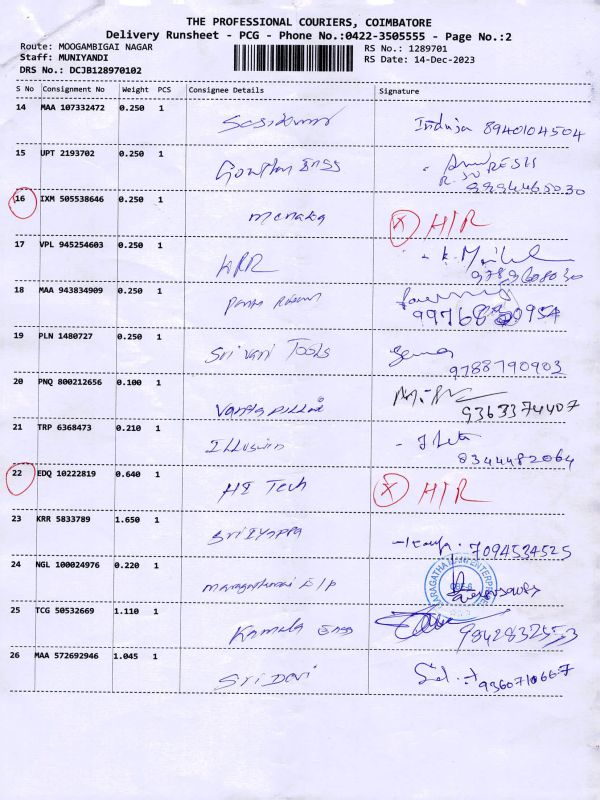 THE PROFESSIONAL COURIERS, COIMBATORE
Delivery Runsheet - PCG - Phone No.:0422-3505555 - Page No.:2
Route: MOOGAMBIGAI NAGAR
RS No.: 1289701
Staff: MUNIYANDI
RS Date: 14-Dec-2023
DRS No.: DCJB128970102
S No Consignment No Weight PCS Consignee Details Signature
14 MAA 107332472 0.250 1 Sasikumar Induja 8940104504
15 UPT 2193702 0.250 1 Gowtham Engg
16 IXM 505538646 0.250 1 Menaka X H/R
17 VPL 945254603 0.250 1 KRR
9789608030
18 MAA 943834909 0.250 1
19 PLN 1480727 0.250 1 Sri Vari Tools
9788790903
20 PNQ 800212656 0.100 1
9363374407
21 TRP 6368473 0.210 1
8344482064
22 EDQ 10222819 0.640 1 HI Tech X H/R
23 KRR 5833789 1.650 1 Sri Iyappa
7094534525
24 NGL 100024976 0.220 1
25 TCG 50532669 1.110 1 Kamala Engg
9842832553
26 MAA 572692946 1.045 1 Sri Devi
9360710667